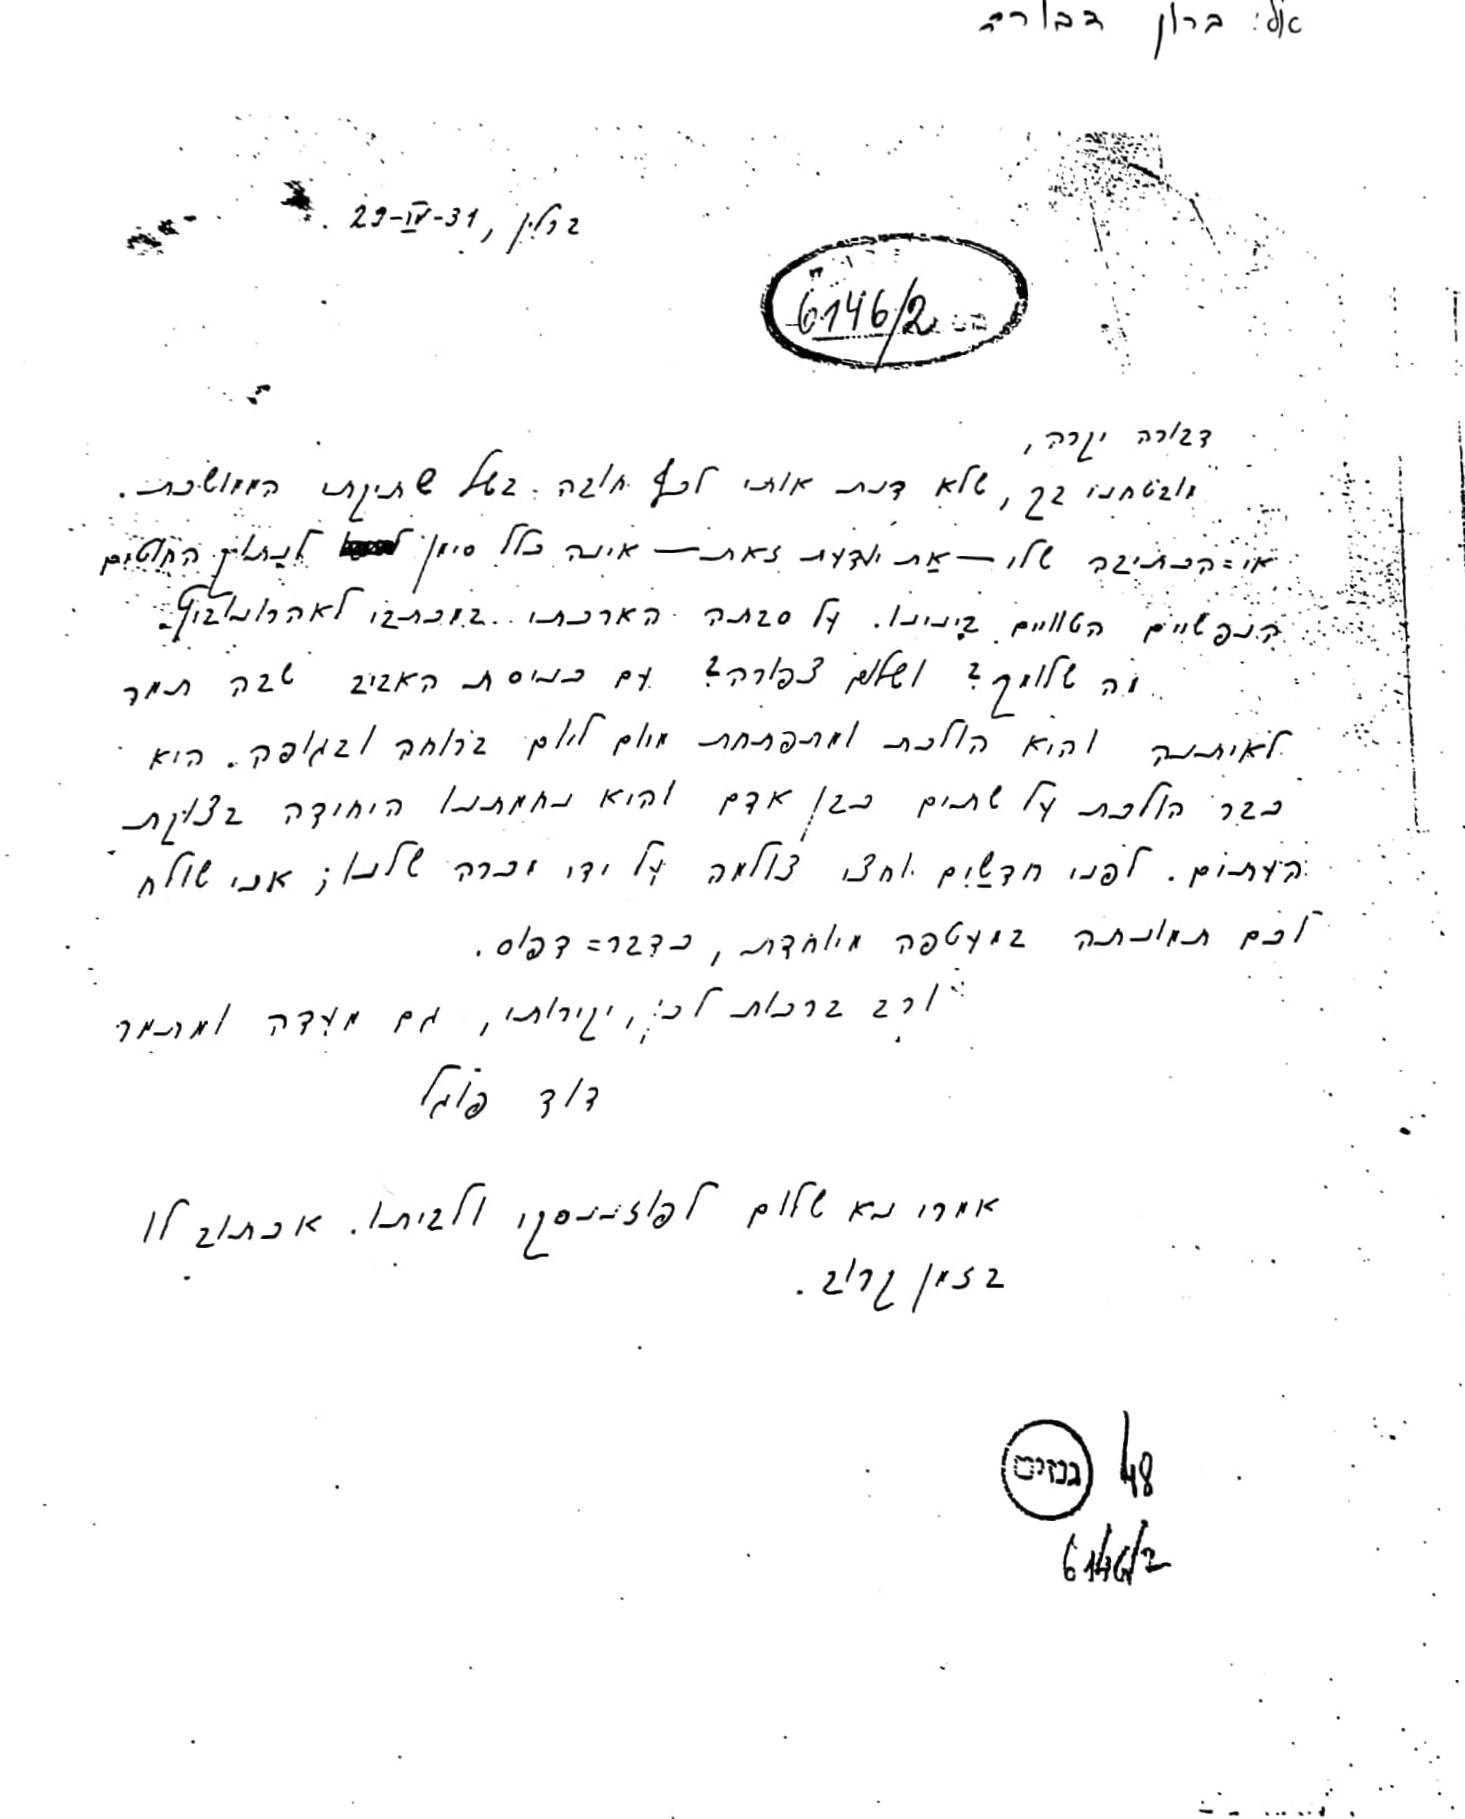 אל: ברון דבורה
ברלין, 29-IV-31.
6146/2
דבורה יקרה,
מובטחני בך, שלא דנת אותי לכף חובה בשל שתיקתי הממושכת.
אי=הכתיבה שלי — את יודעת זאת — אינה כלל סימן לנתוק החוטים
הנפשיים הטווים בינינו. על סבתה הארכתי במכתבי לאהרונוביץ.
מה שלומך? ושלום צפורה? עם כניסת האביב שבה תמר
לאיתנה והיא הולכת ומתפתחת מיום ליום ברוחה ובגופה. היא
כבר הולכת על שתים כבן אדם והיא נחמתנו היחידה בצוקת
העתים. לפני חדשים וחצי צולמה על ידי מכרה שלנו; אני שולח
לכם תמונתה במעטפה מיוחדת, כדבר=דפוס.
ורב ברכות לכן, יקירותי, גם מעדה ומתמר
דוד פוגל
אמרי נא שלום לפוזננסקי ולביתו. אכתוב לו
בזמן קרוב.
גנזים 48
6146/2